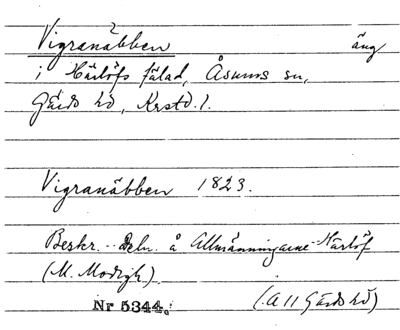 Vigranäbben äng
i Härlöfs fälad, Åsums sn,
Gärds hd, Krstd. l.
Vigranäbben 1823.
Beskr. - Deln. å Allmänningarne Härlöf
(M. Modigh).
Nr 5344. (A 11 Gärds hd)